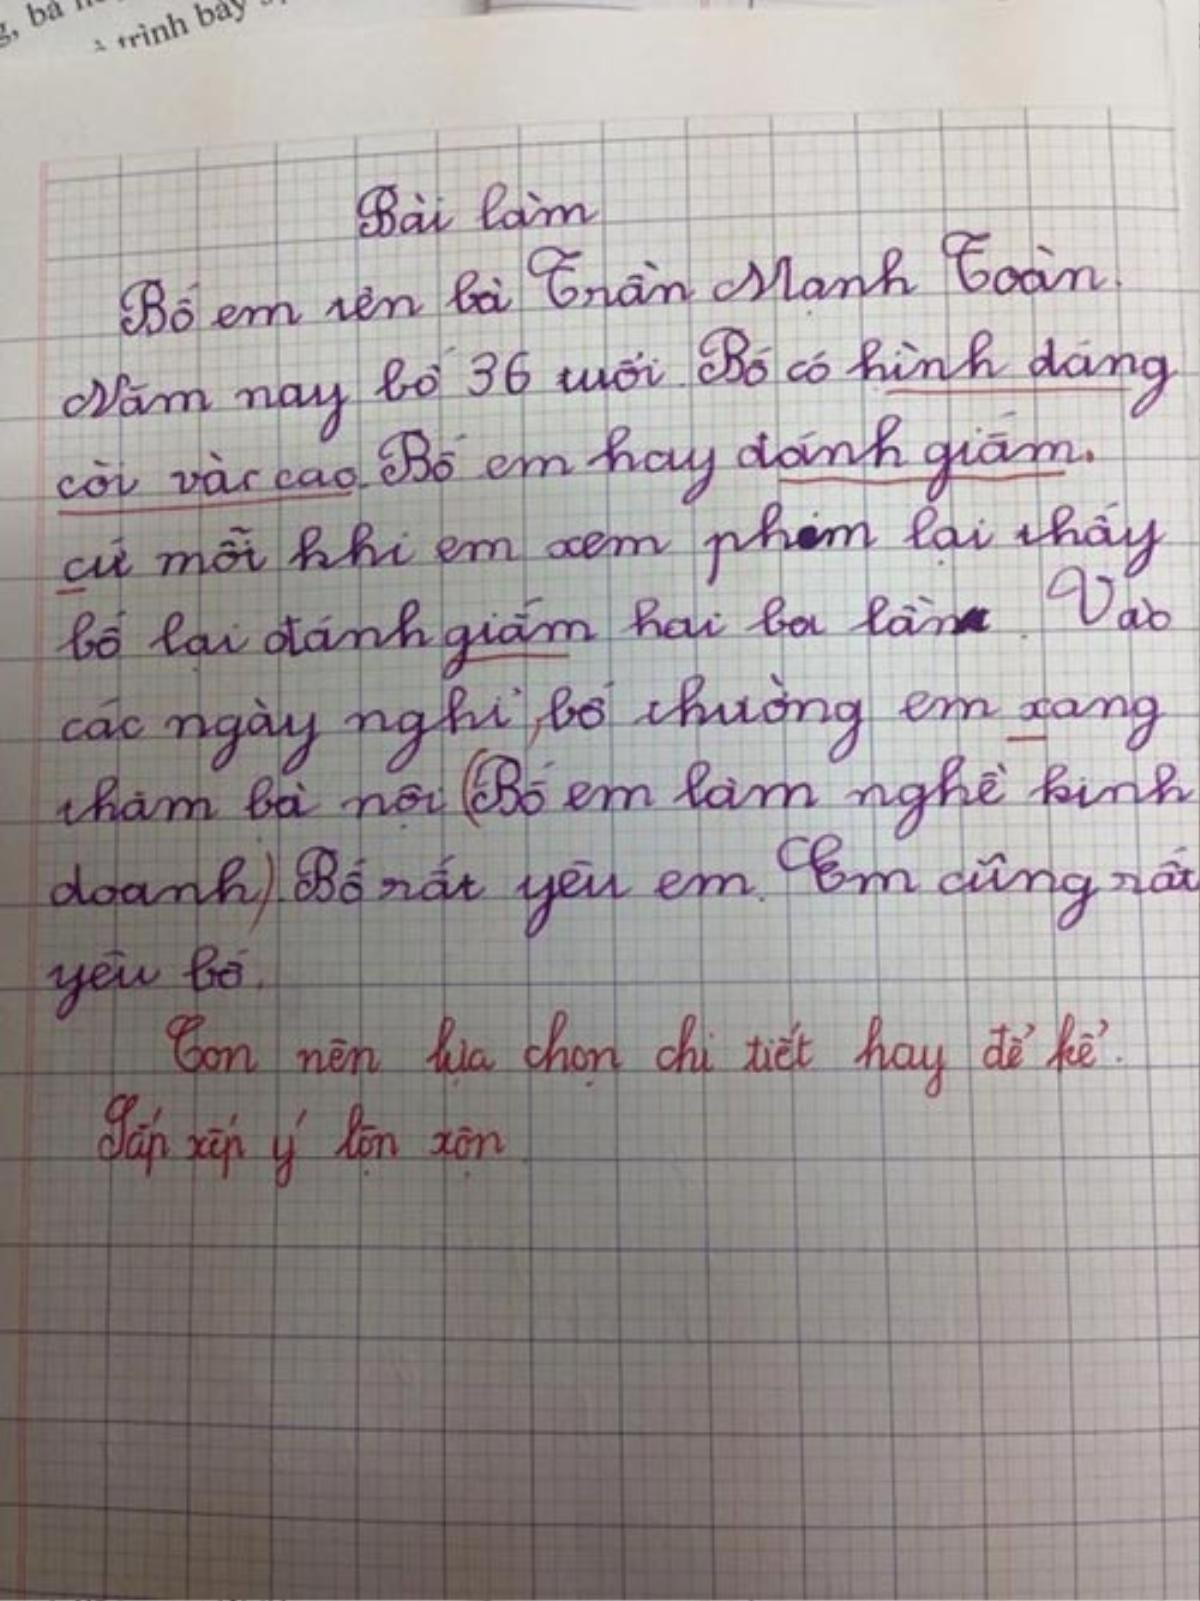 trình bày
Bài làm
Bố em tên là Trần Mạnh Toàn.
Năm nay bố 36 tuổi. Bố có hình dáng
còi vàr cao. Bố em hay dánh giấm.
cứ mỗi khi em xem phim lại thấy
bố lại đánh giấm hai ba lần. Vào
các ngày nghỉ, bố thường em xang
thăm bà nội (Bố em làm nghề kinh
doanh) Bố rất yêu em. Em cũng rất
yêu bố.
Con nên lựa chọn chi tiết hay để kể.
Sắp xếp ý lộn xộn